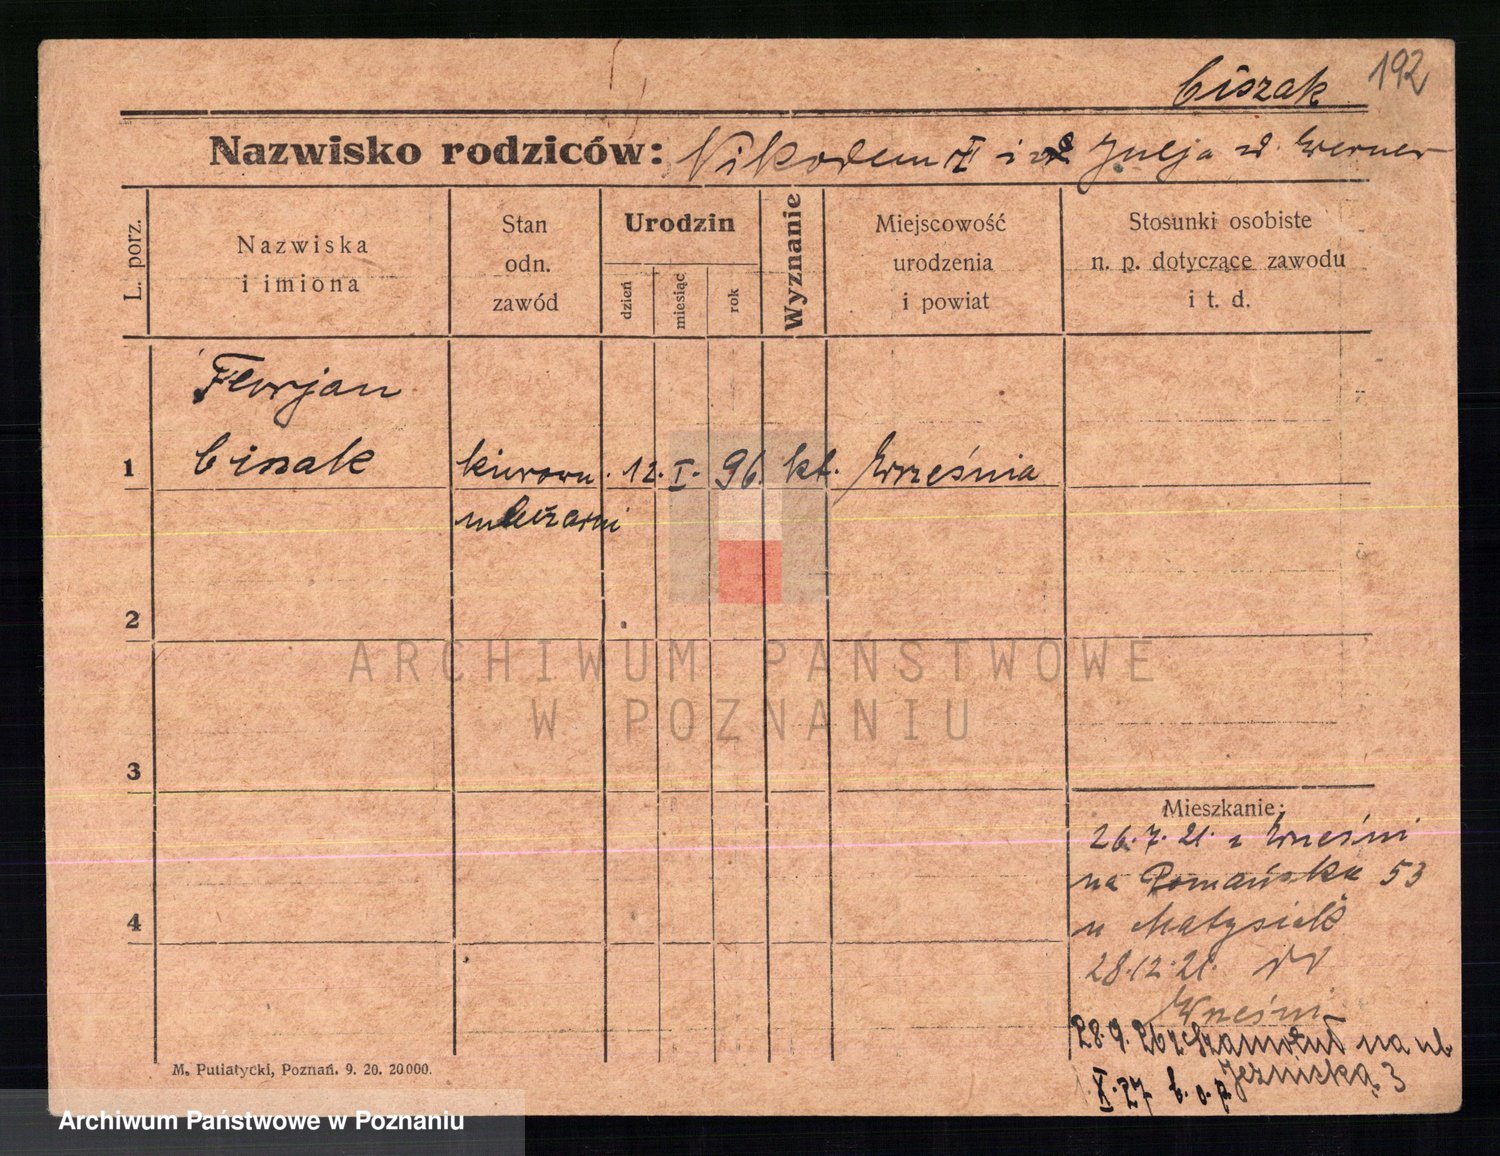 192
Ciszak
Nazwisko rodziców: Nikodem i Julja d. Werner
L. porz.
Nazwiska
i imiona
Stan
odn.
zawód
Urodzin
dzień
miesiąc
rok
Wyznanie
Miejscowość
urodzenia
i powiat
Stosunki osobiste
n. p. dotyczące zawodu
i t. d.
Florjan
1 Ciszak kierown. 12. I. 96. kt. Września
mleczarni
2
3
4
Mieszkanie:
26.7.21. z Wrześni
na Poznańska 53
u Matysiak
28.12.21. do
Wrześni
28.9.26 z Szamotuł na ul.
Jeżycka 3
X.27 b.o.p.
M. Putiatycki, Poznań. 9. 20. 20000.
ARCHIWUM PAŃSTWOWE
W POZNANIU
Archiwum Państwowe w Poznaniu